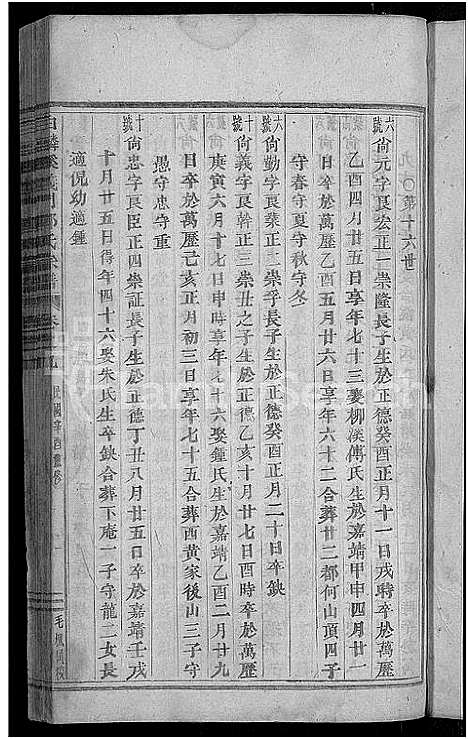 第十六世
六號尙元字良宏正一崇隆長子生於正德癸酉正月十一日戌時卒於萬歷
乙酉四月廿五日享年七十三娶柳溪傅氏生於嘉靖甲申四月廿一
日卒於萬歷乙亥五月廿六日享年六十二合葬廿二都何山頂四子
守春守夏守秋守冬
八號尙勤字良業正二崇孚長子生於正德癸酉正月二十日卒缺
十號尙義字良幹正三崇丑之子生於正德乙亥十月廿七日酉時卒於萬歷
庚寅六月十七日申時年七十六娶鍾氏生於嘉靖乙酉二月廿九
日卒於萬歷己亥正月初三日享年七十五合葬西黃家後山三子守
愚守忠守重
十號尙忠字良臣正四崇証長子生於正德丁丑八月廿五日卒於嘉靖壬戌
十月廿五日得年四十六娶朱氏生卒缺合葬下庵一子守龍二女長
適倪幼適鍾
民國辛酉重修